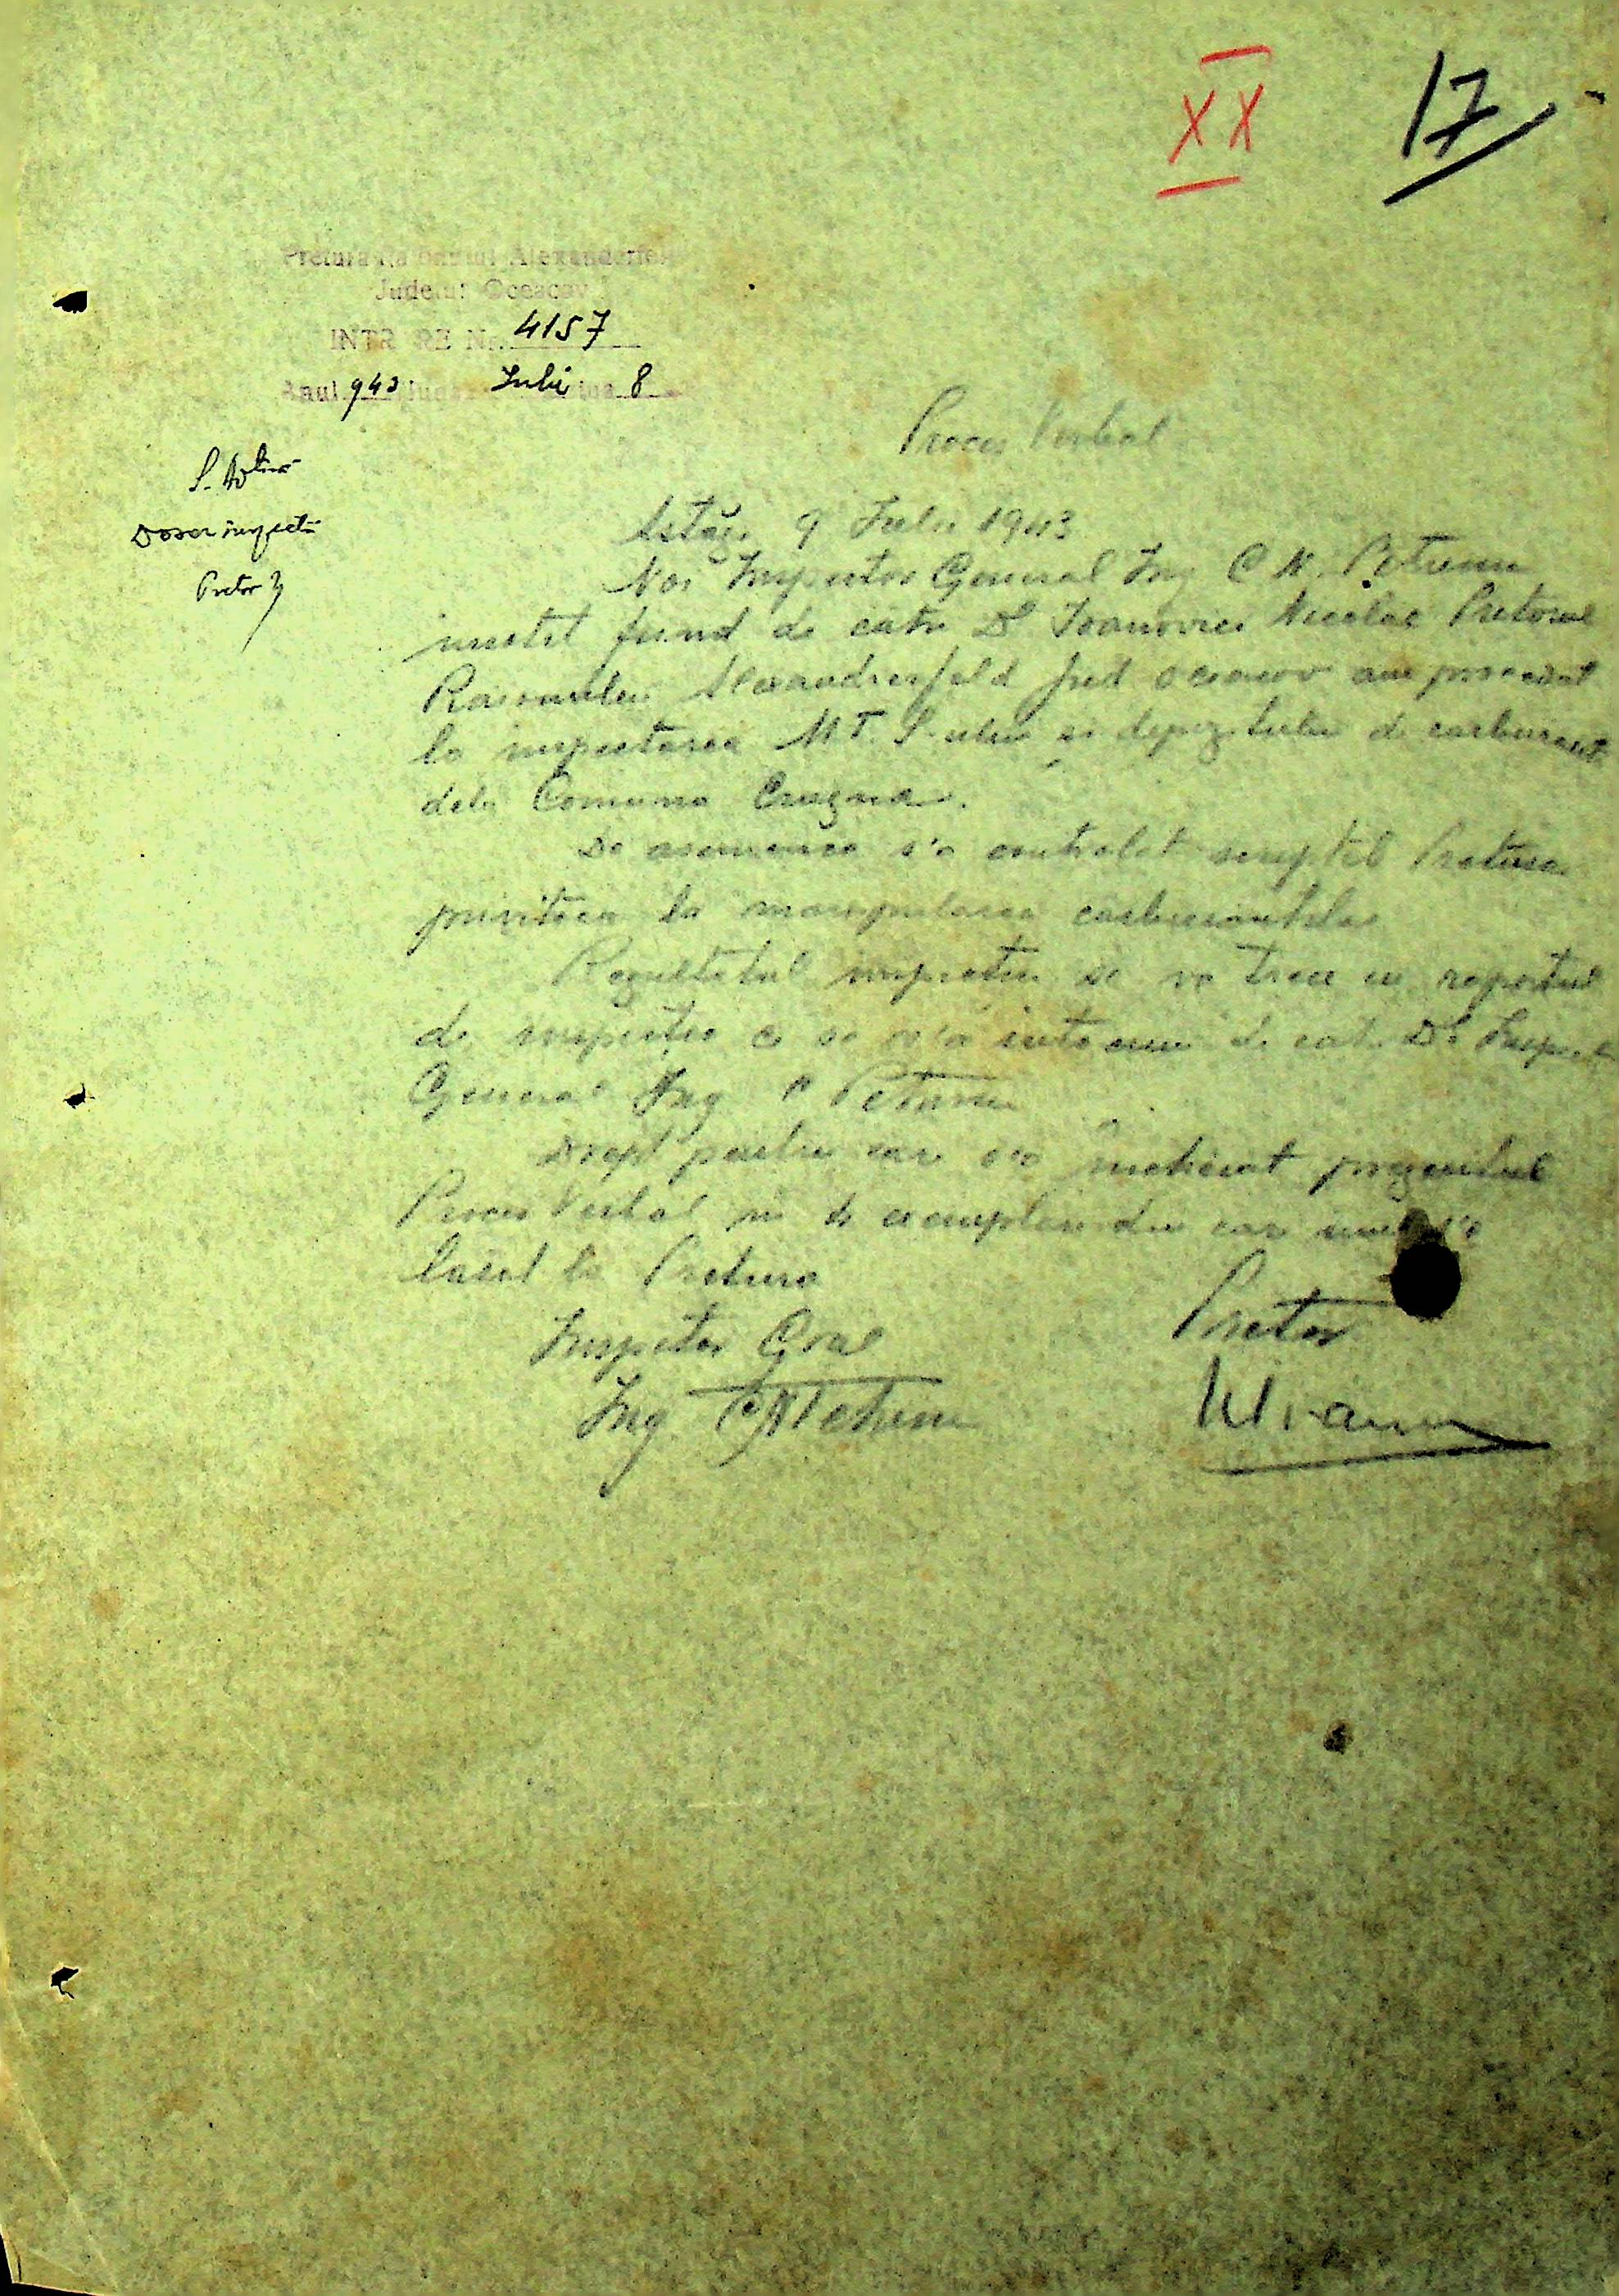 XX
17
Pretura Raionului Alexanderfeld
Județul Oceacov
INTRARE Nr. 4157
Anul 943 luna Iulie ziua 8
Dosar inspecții
Pretor
Proces Verbal
Astăzi 9 Iulie 1943
Noi Inspector General Ing C N. Petrescu
insotit fiind de catre Dl Ioanovici Nicolae Pretorul
Raionului Alexandersfeld Jud Oceacov am procedat
la inspectarea M.T.S-ului si depozitului de carburant
dela Comuna
De asemenea s'a controlat Pretura
privitoare la manipularea carburantilor
Rezultatul inspectiei se va trece in raportul
de inspectie ce se va intocmi de cat. Dl Inspector
General Ing C Petrescu
Drept pentru care s'a incheiat prezentul
Proces Verbal in exemplare din care unul s'a
lasat la Pretura
Inspector Gral
Pretor
Ing CNPetrescu